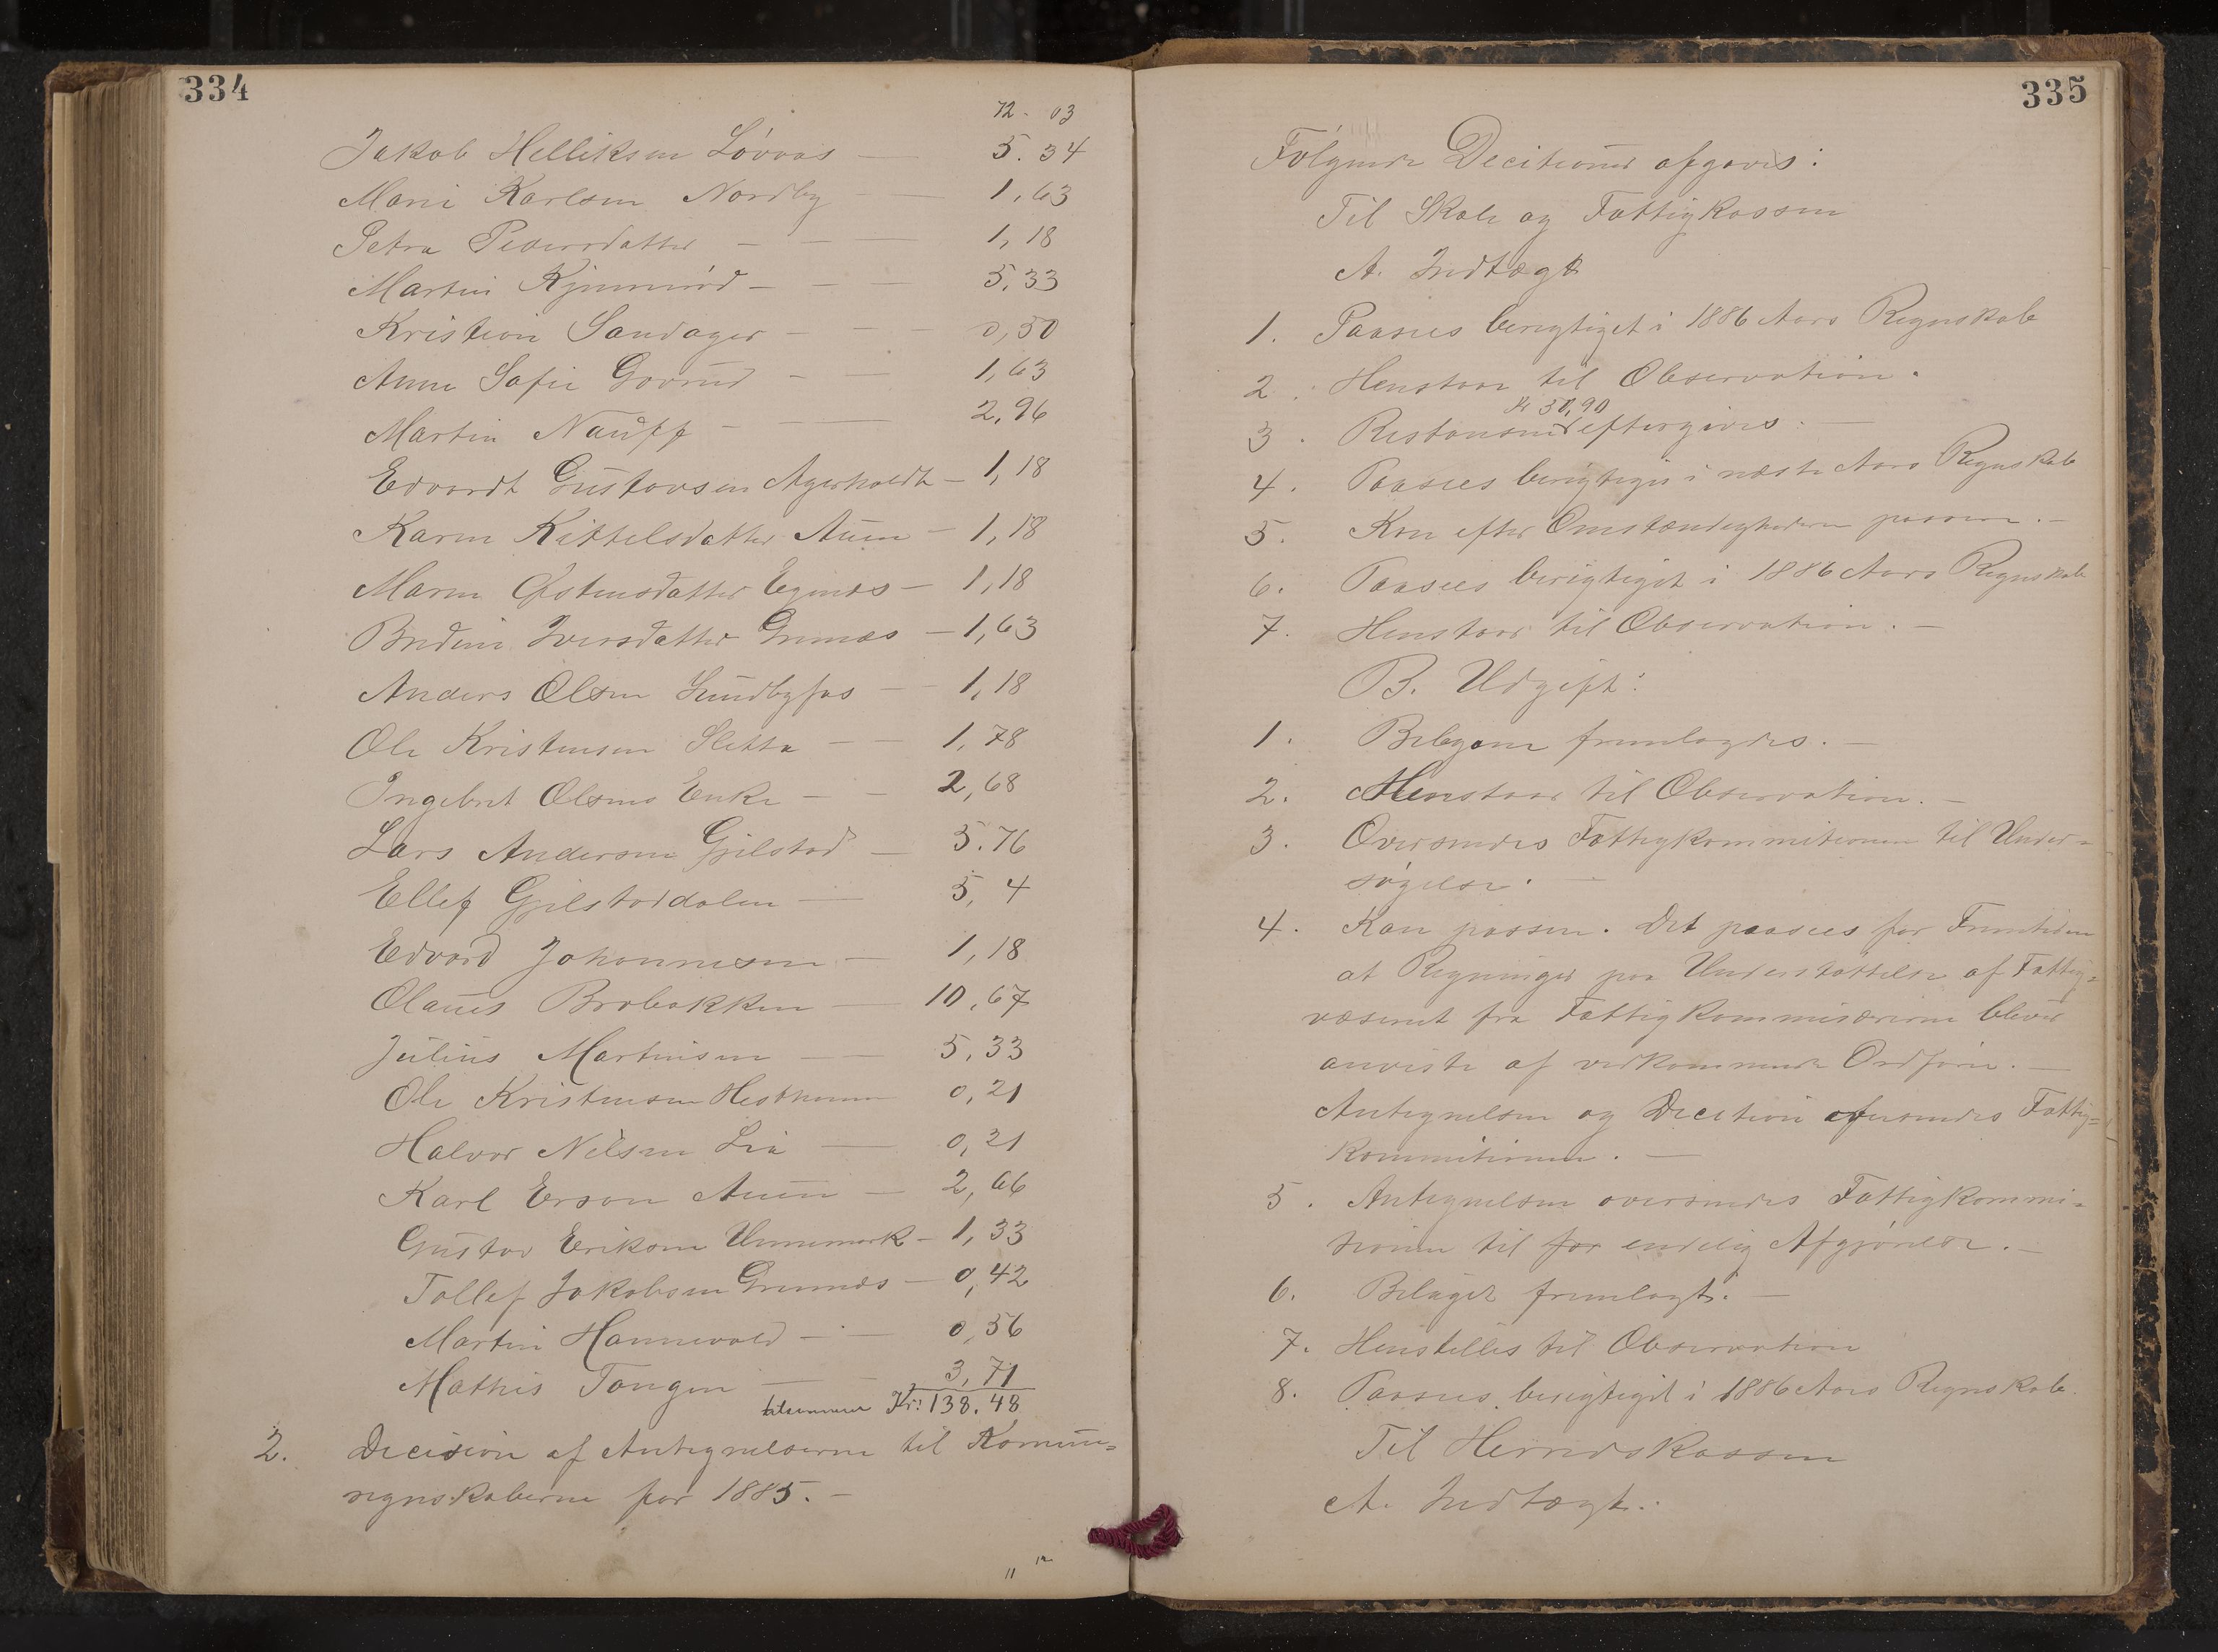 334
72 - 03
Jakob Helliksen Løvaas — 5.34
Marie Karlsen Nordby — 1,63
Petra Pedersdatter — — — 1,18
Martin Kjennerød — — — 5,33
Kristian Sandager — — — 0,50
Anne Sofie Govrud — — 1,63
Martin Nauff — — — 2,96
Edvardt Gustavsen Agerholdt — 1,18
Karen Kittelsdatter Auen — 1,18
Maren Østensdatter Egenes — 1,18
Bredine Iversdatter Grennes — 1,63
Anders Olsen Sundbyfos — — 1,18
Ole Kristensen Sletta — — 1,78
Ingebret Olsens Enke — — 2,68
Lars Andersen Gjelstad — 5.76
Ellef Gjelstaddalen — 5, 4
Edvard Johannesen — 1,18
Olaus Brobakken — 10,67
Julius Martinsen — 5,33
Ole Kristensen 0,21
Halvor Nilsen Lia — 0,21
Karl Auen — 2,66
Gustav Eriksen Unnemark — 1,33
Tollef Jakobsen Grennes — 0,42
Martin Hannevold — — 0,56
Mathis Tangen — — 3,71
tilsammen Kr: 138.48
2. Decision af Antegnelserne til Komune=
regnskaberne for 1885. —
335
Følgende Decitioner afgaves:
Til Skole og Fattigkassen
A. Indtægt
1. Paasees berigtiget i 1886 Aars Regnskab
2. Henstaar til Observation.
Kr 50,90
3. Restansen eftergives. —
4. Paasees berigtiges i næste Aars Regnskab
5. Kan efter Omstændighederne passere. —
6. Paasees berigtiget i 1886 Aars Regnskab
7. Henstaar til Observation. —
B. Udgift:
1. Bilagene fremlagdes. —
2. Henstaar til Observation. —
3. Oversendes Fattigkommitionen til Under=
søgelse. —
4. Kan passere. Det paasees for Fremtiden
at Regninger paa Understøttelse af Fattig=
væsenet fra Fattigkommisærerne bliver
anviste af vedkommende Ordfører. —
Antegnelsen og Decition oversendes Fattig=
kommitionen. —
5. Antegnelsen oversendes Fattigkommi=
tionen til for endelig Afgjørelse. —
6. Bilaget fremlagt. —
7. Henstilles til Observation
8. Paasees berigtiget i 1886 Aars Regnskab.
Til Herredskassen
A. Indtægt.